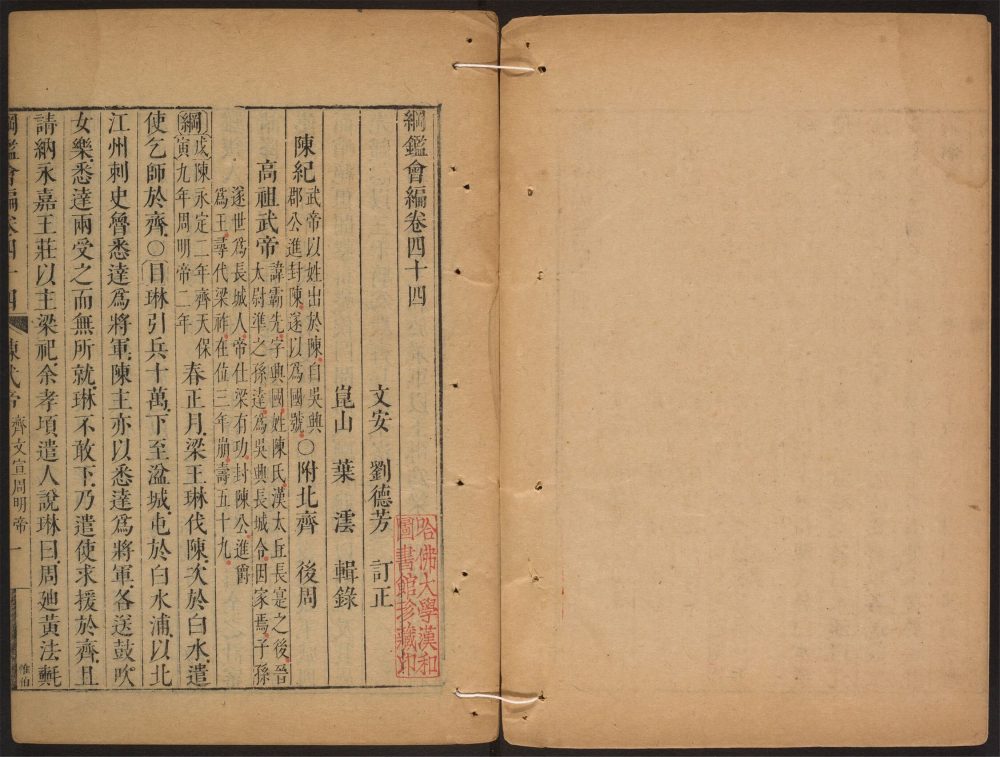 綱鑑會編卷四十四
文安 劉德芳 訂正
崑山 葉澐 輯錄
陳紀 武帝以姓出於陳自吳興郡公進封陳遂以爲國號 〇附北齊 後周
高祖武帝 諱霸先字興國姓陳氏漢太丘長寔之後晉太尉準之孫達爲吳興長城令因家焉子孫
遂世爲長城人帝仕梁有功封陳公進爵爲王尋代梁祚在位三年崩壽五十九
綱 戊寅 陳永定二年齊天保九年周明帝二年 春正月梁王琳伐陳次於白水遣
使乞師於齊〇目琳引兵十萬下至湓城屯於白水浦以北
江州刺史魯悉達爲將軍陳主亦以悉達爲將軍各送鼓吹
女樂悉達兩受之而無所就琳不敢下乃遣使求援於齊且
請納永嘉王莊以主梁祀余孝頃遣人說琳曰周迪黃法𣰋
綱鑑會編卷四十四 陳武帝 齊文宣周明帝 一
哈佛大學漢和
圖書館珍藏印